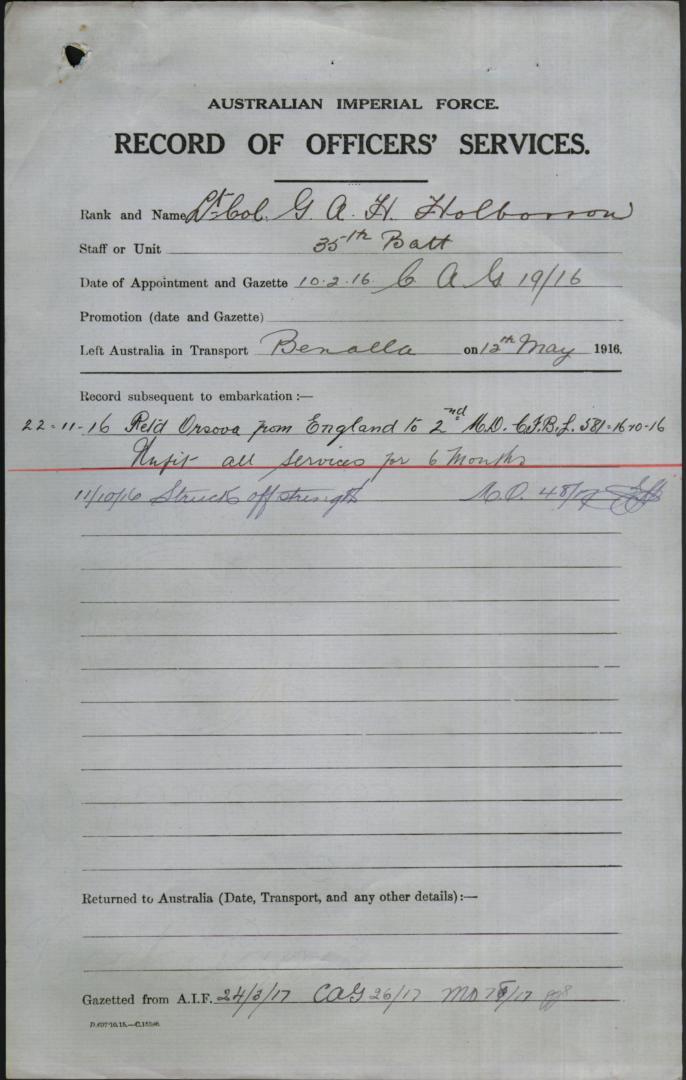 AUSTRALIAN IMPERIAL FORCE.
RECORD OF OFFICERS' SERVICES.
Rank and Name Lt Col. G. A. H. Holborow
Staff or Unit 35th Batt
Date of Appointment and Gazette 10.2.16. C A G 19/16
Promotion (date and Gazette)
Left Australia in Transport Benalla on 12th May 1916.
Record subsequent to embarkation:—
22-11-16 Retd Orsova from England to 2nd M.D. C.F.B.L. 581=16-10-16
Unfit all services for 6 Months
11/10/16 Struck off strength M.O. 48/17
Returned to Australia (Date, Transport, and any other details):—
Gazetted from A.I.F. 24/3/17 CAG 26/17 MO
D.697/10.15.—C.